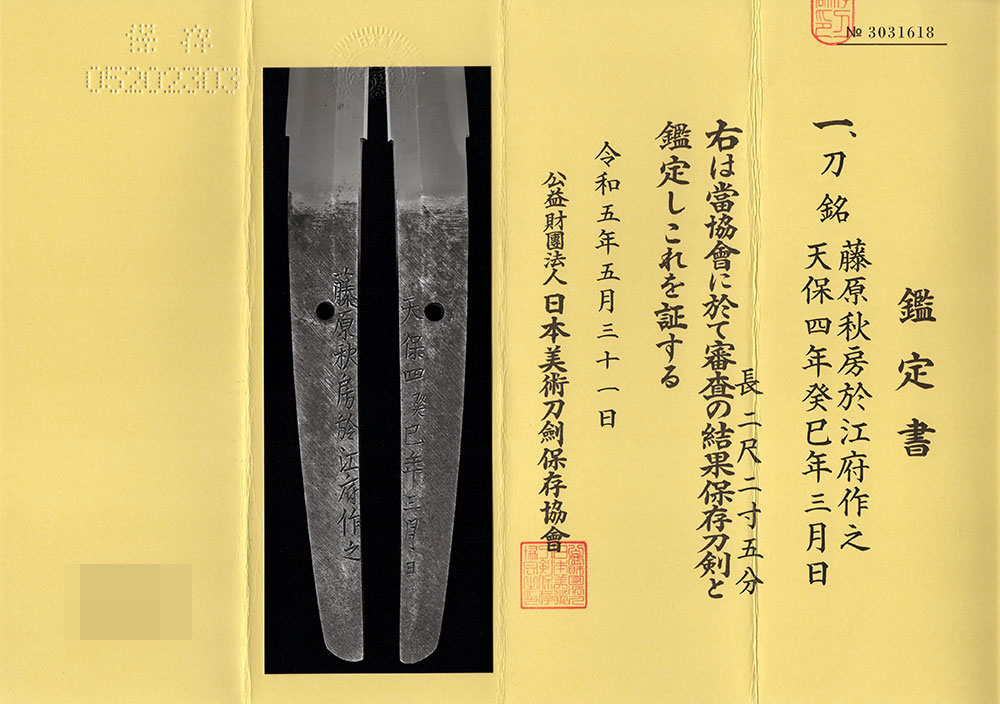 № 3031618
鑑定書
一、刀 銘 藤原秋房於江府作之
天保四年癸巳年三月日
長 二尺二寸五分
右は當協會に於て審査の結果保存刀剣と
鑑定しこれを証する
令和五年五月三十一日
公益財團法人 日本美術刀劍保存協會
天保四癸巳年三月日
藤原秋房於江府作之
保存
05202303